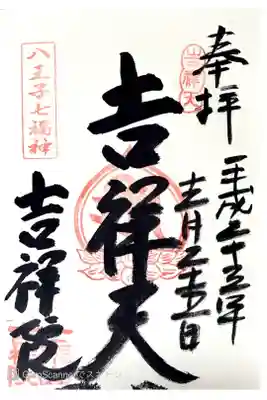 奉拝
平成二十五年
月二十五日
吉祥天
吉祥天
八王子七福神
吉祥院
CamScannerでスキャン